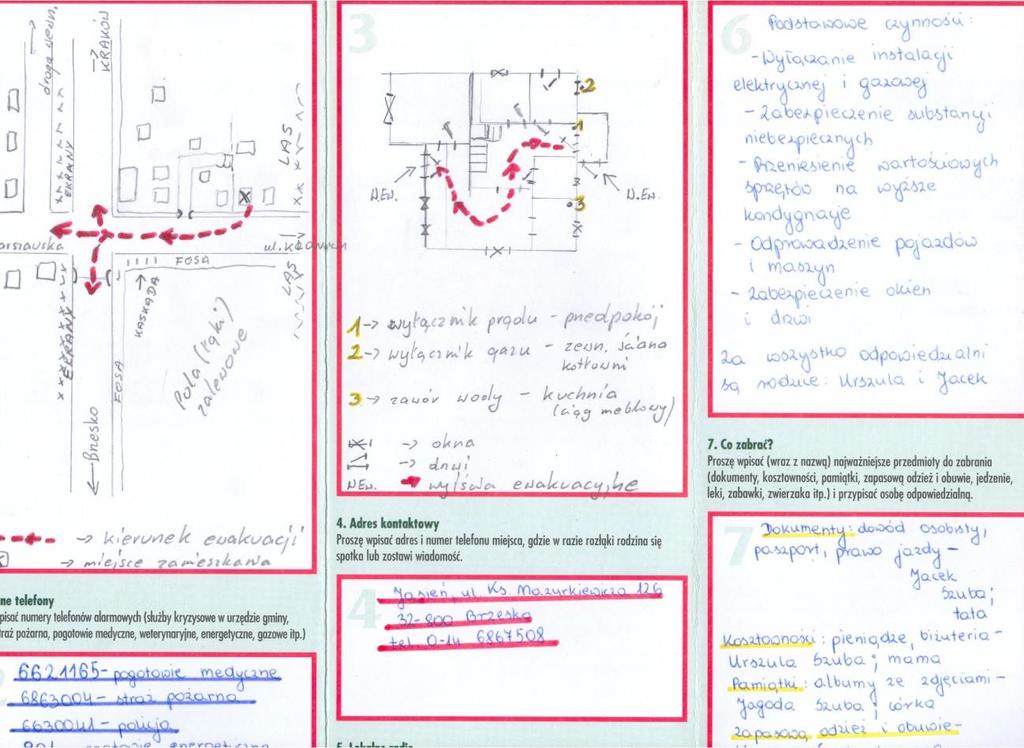 droga wewn.
KRAKÓW
EKRANY
LAS
ul. K
FOSA
LAS
KASKADA
EKRANY
FOSA
Pola (łąki)
zalewowe
Brzesko
-> kierunek ewakuacji
-> miejsce zamieszkania
ne telefony
pisać numery telefonów alarmowych (służby kryzysowe w urzędzie gminy,
traż pożarna, pogotowie medyczne, weterynaryjne, energetyczne, gazowe itp.)
6621165 - pogotowie medyczne
6863004 - straż pożarna
6630041 - policja
3
2
1
W.EW.
W.EW.
3
1 -> wyłącznik prądu - przedpokój
2 -> wyłącznik gazu - zewn. ściana
kotłowni
3 -> zawór wody - kuchnia
(ciąg meblowy)
-> okna
-> drzwi
W.EW. -> wyjścia ewakuacyjne
4. Adres kontaktowy
Proszę wpisać adres i numer telefonu miejsca, gdzie w razie rozłąki rodzina się
spotka lub zostawi wiadomość.
4
Jasień, ul. Ks. Mazurkiewicza 126
32-800 Brzesko
tel. 0-14 6867508
5. Lokalne radio
6
Podstawowe czynności:
- Wyłączanie instalacji
elektrycznej i gazowej
- Zabezpieczenie substancji
niebezpiecznych
- Przeniesienie wartościowych
sprzętów na wyższe
kondygnacje
- Odprowadzenie pojazdów
i maszyn
- Zabezpieczenie okien
i drzwi
Za wszystko odpowiedzialni
są rodzice: Urszula i Jacek
7. Co zabrać?
Proszę wpisać (wraz z nazwą) najważniejsze przedmioty do zabrania
(dokumenty, kosztowności, pamiątki, zapasową odzież i obuwie, jedzenie,
leki, zabawki, zwierzaka itp.) i przypisać osobę odpowiedzialną.
7
Dokumenty: dowód osobisty,
paszport, prawo jazdy -
Jacek
Szuba;
tata
Kosztowności: pieniądze, biżuteria -
Urszula Szuba; mama
Pamiątki: albumy ze zdjęciami -
Jagoda Szuba; córka
zapasową odzież i obuwie -